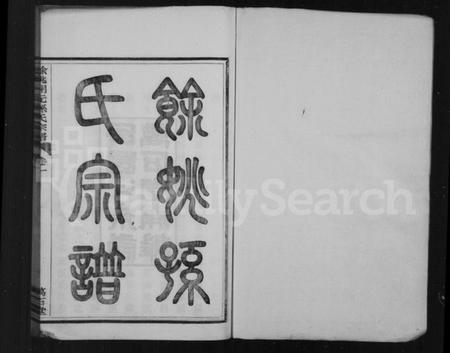 餘姚孫
氏宗譜
FamilySearch